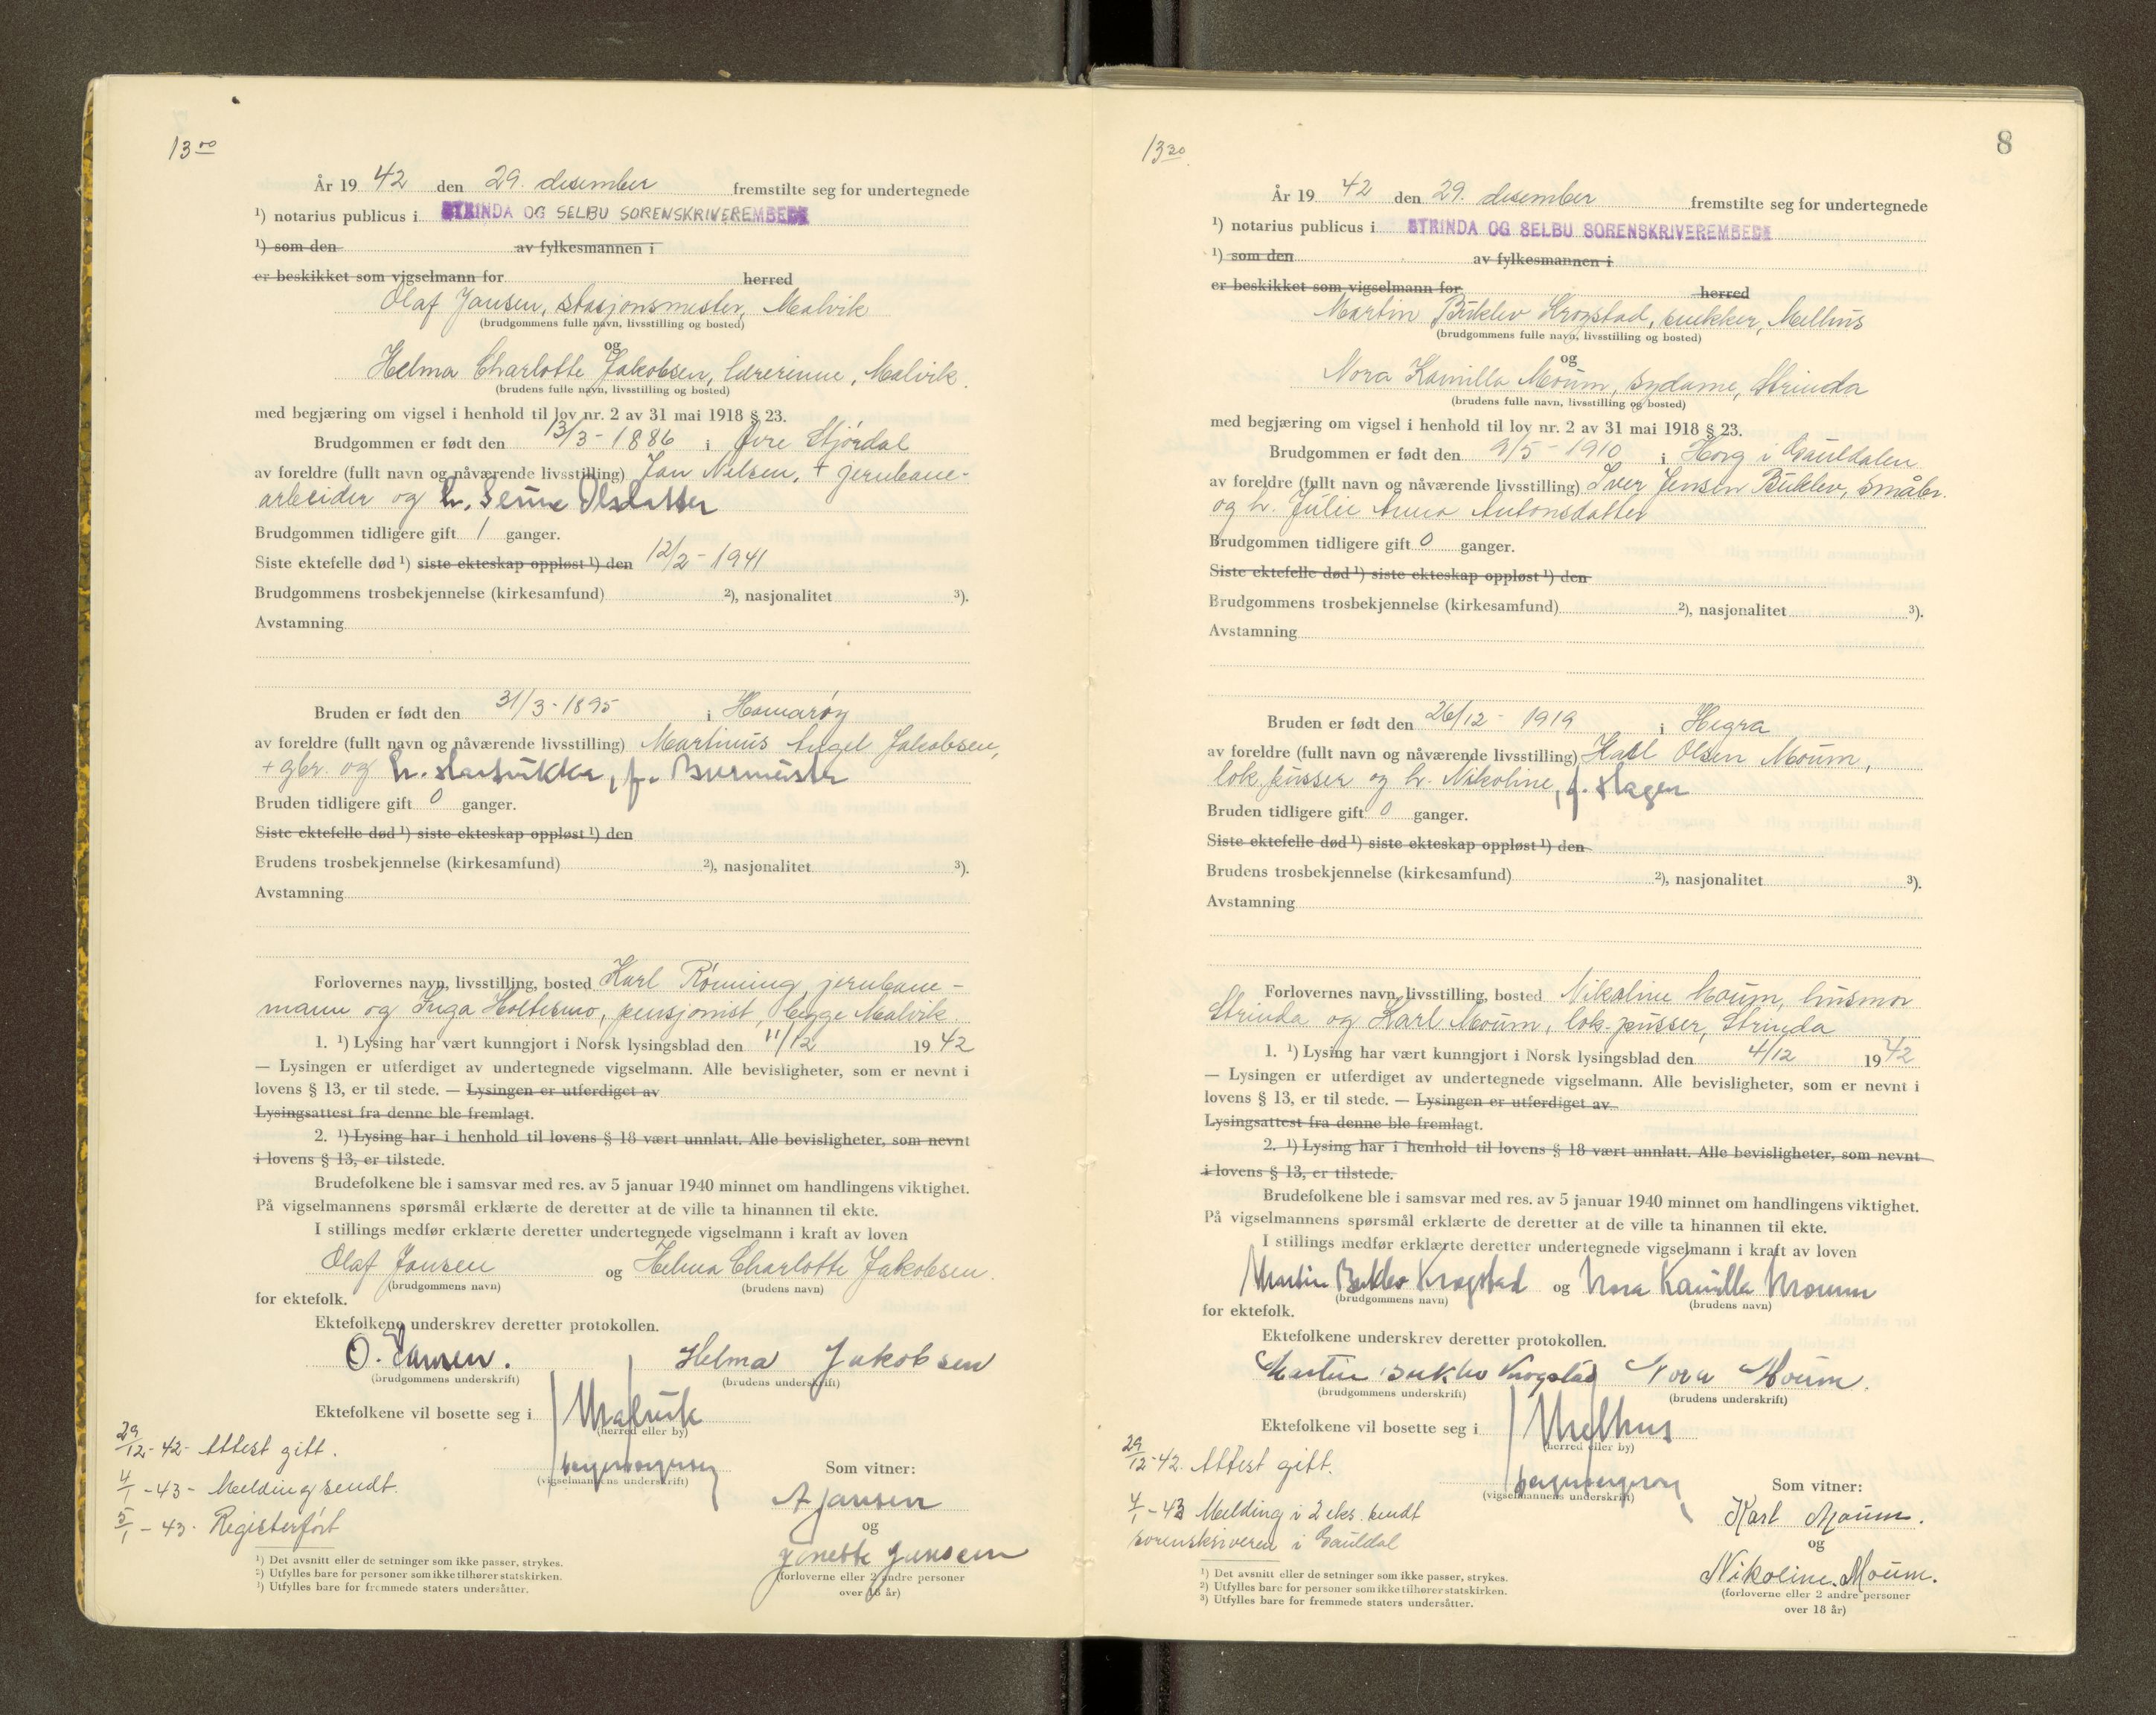 13 00
År 19 42 den 29. desember fremstilte seg for undertegnede
¹) notarius publicus i STRINDA OG SELBU SORENSKRIVEREMBEDE
¹) som den av fylkesmannen i
er beskikket som vigselmann for herred
Olaf Jansen, stasjonsmester, Malvik
(brudgommens fulle navn, livsstilling og bosted)
og
Helma Charlotte Jakobsen, lærerinne, Malvik.
(brudens fulle navn, livsstilling og bosted)
med begjæring om vigsel i henhold til lov nr. 2 av 31 mai 1918 § 23.
Brudgommen er født den 13/3 - 1886 i Øvre Stjørdal
av foreldre (fullt navn og nåværende livsstilling) Jan Nilsen, + jernbane-
arbeider og h. Olsdatter
Brudgommen tidligere gift 1 ganger.
Siste ektefelle død ¹) siste ekteskap oppløst ¹) den 12/2 - 1941
Brudgommens trosbekjennelse (kirkesamfund) ²), nasjonalitet ³).
Avstamning
Bruden er født den 31/3 - 1895 i Hamarøy
av foreldre (fullt navn og nåværende livsstilling) Martinus Angel Jakobsen,
+ gbr. og h. f. Burmeister
Bruden tidligere gift 0 ganger.
Siste ektefelle død ¹) siste ekteskap oppløst ¹) den
Brudens trosbekjennelse (kirkesamfund) ²), nasjonalitet ³).
Avstamning
Forlovernes navn, livsstilling, bosted Karl Rønning, jernbane-
mann og Inga Holtesmo, pensjonist, begge Malvik.
1. ¹) Lysing har vært kunngjort i Norsk lysingsblad den 11/12 19 42
— Lysingen er utferdiget av undertegnede vigselmann. Alle bevisligheter, som er nevnt i
lovens § 13, er til stede. — Lysingen er utferdiget av
Lysingsattest fra denne ble fremlagt.
2. ¹) Lysing har i henhold til lovens § 18 vært unnlatt. Alle bevisligheter, som nevnt
i lovens § 13, er tilstede.
Brudefolkene ble i samsvar med res. av 5 januar 1940 minnet om handlingens viktighet.
På vigselmannens spørsmål erklærte de deretter at de ville ta hinannen til ekte.
I stillings medfør erklærte deretter undertegnede vigselmann i kraft av loven
Olaf Jansen og Helma Charlotte Jakobsen.
(brudgommens navn) (brudens navn)
for ektefolk.
Ektefolkene underskrev deretter protokollen.
O. Jansen. Helma Jakobsen
(brudgommens underskrift) (brudens underskrift)
Ektefolkene vil bosette seg i Malvik
(herred eller by)
29/12-42- Attest gitt.
(vigselmannens underskrift) Som vitner:
4/1 -43- Melding sendt.
A Jansen
5/1 -43. Registerført
og
Jonette Jansen
(forloverne eller 2 andre personer
over 18 år)
¹) Det avsnitt eller de setninger som ikke passer, strykes.
²) Utfylles bare for personer som ikke tilhører statskirken.
³) Utfylles bare for fremmede staters undersåtter.
8
13 30.
År 19 42 den 29. desember fremstilte seg for undertegnede
¹) notarius publicus i STRINDA OG SELBU SORENSKRIVEREMBEDE
¹) som den av fylkesmannen i
er beskikket som vigselmann for herred
Martin Buklev Krogstad, snekker, Melhus
(brudgommens fulle navn, livsstilling og bosted)
og
Nora Kamilla Moum, sydame, Strinda
(brudens fulle navn, livsstilling og bosted)
med begjæring om vigsel i henhold til lov nr. 2 av 31 mai 1918 § 23.
Brudgommen er født den 9/5 - 1910 i Horg i Gauldalen
av foreldre (fullt navn og nåværende livsstilling) Iver Jensen Buklev, småbr.
og h. Julie Anna Antonsdatter
Brudgommen tidligere gift 0 ganger.
Siste ektefelle død ¹) siste ekteskap oppløst ¹) den
Brudgommens trosbekjennelse (kirkesamfund) ²), nasjonalitet ³).
Avstamning
Bruden er født den 26/12 - 1919 i Hegra
av foreldre (fullt navn og nåværende livsstilling) Karl Olsen Moum,
lok.pusser og h. Nikoline, f. Hagen
Bruden tidligere gift 0 ganger.
Siste ektefelle død ¹) siste ekteskap oppløst ¹) den
Brudens trosbekjennelse (kirkesamfund) ²), nasjonalitet ³).
Avstamning
Forlovernes navn, livsstilling, bosted Nikoline Moum, husmor
Strinda og Karl Moum, lok-pusser, Strinda
1. ¹) Lysing har vært kunngjort i Norsk lysingsblad den 4/12 19 42
— Lysingen er utferdiget av undertegnede vigselmann. Alle bevisligheter, som er nevnt i
lovens § 13, er til stede. — Lysingen er utferdiget av
Lysingsattest fra denne ble fremlagt.
2. ¹) Lysing har i henhold til lovens § 18 vært unnlatt. Alle bevisligheter, som nevnt
i lovens § 13, er tilstede.
Brudefolkene ble i samsvar med res. av 5 januar 1940 minnet om handlingens viktighet.
På vigselmannens spørsmål erklærte de deretter at de ville ta hinannen til ekte.
I stillings medfør erklærte deretter undertegnede vigselmann i kraft av loven
Martin Buklev Krogstad og Nora Kamilla Moum
(brudgommens navn) (brudens navn)
for ektefolk.
Ektefolkene underskrev deretter protokollen.
Martin Buklev Krogstad Nora Moum.
(brudgommens underskrift) (brudens underskrift)
Ektefolkene vil bosette seg i Melhus
(herred eller by)
29/12-42. Attest gitt.
(vigselmannens underskrift) Som vitner:
4/1 -43 Melding i 2 eks. sendt
Karl Moum.
sorenskriveren i Gauldal
og
Nikoline Moum.
(forloverne eller 2 andre personer
over 18 år)
¹) Det avsnitt eller de setninger som ikke passer, strykes.
²) Utfylles bare for personer som ikke tilhører statskirken.
³) Utfylles bare for fremmede staters undersåtter.